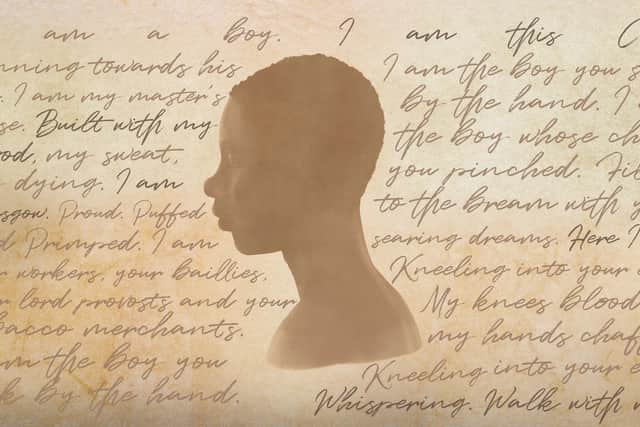 am a boy. I am this C
nning towards his
. I am my master's
se. Built with my
ood, my sweat,
dying. I am
sgow. Proud. Puffed
d Primped. I am
r workers, your Baillies,
r lord provosts and your
bacco merchants.
m the boy you
k by the hand.
I am the boy you s
by the hand. I
the boy whose ch
you pinched. Fil
to the bream with y
searing dreams. Here I
Kneeling into your
My knees blood
my hands chaf
Kneeling into your e
Whispering. Walk with m